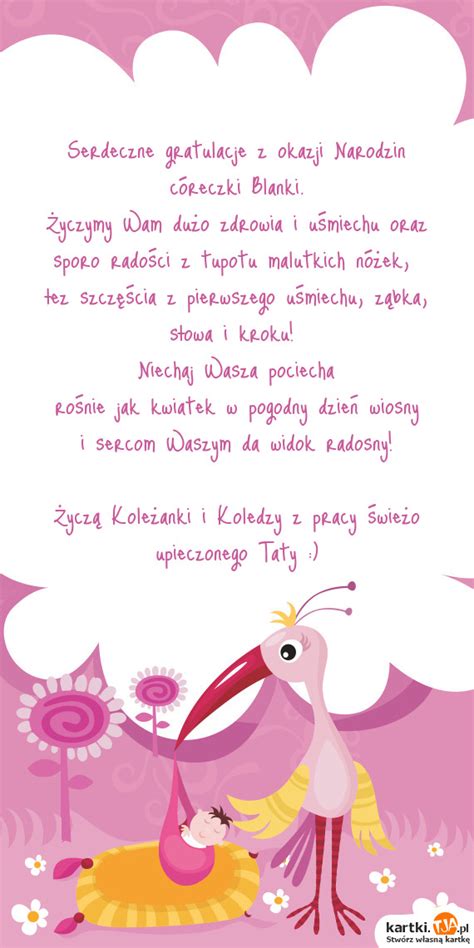 Serdeczne gratulacje z okazji Narodzin
córeczki Blanki.
Życzymy Wam dużo zdrowia i uśmiechu oraz
sporo radości z tupotu malutkich nóżek,
łez szczęścia z pierwszego uśmiechu, ząbka,
słowa i kroku!
Niechaj Wasza pociecha
rośnie jak kwiatek w pogodny dzień wiosny
i sercom Waszym da widok radosny!
Życzą Koleżanki i Koledzy z pracy świeżo
upieczonego Taty :)
kartki.TJA.pl
Stwórz własną kartkę